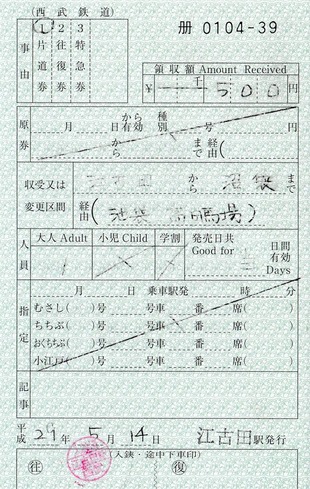 (西武鉄道)
冊 0104-39
事由
1 片道券
2 往復券
3 特急券
領収額 Amount Received
¥ 千 500 円
原券
月 日 から有効 種別 号
から まで 経由(
収受又は変更区間
江古田 から 沼袋 まで
経由(池袋 高田馬場)
人員
大人 Adult 小児 Child 学割
1
発売日共 Good for 当 日間有効 Days
指定
月 日 乗車駅発 時 分
むさし( )号 号車 番 席( )
ちちぶ( )号 号車 番 席( )
おくちちぶ( )号 号車 番 席( )
小江戸( )号 号車 番 席( )
記事
平成 29 年 5 月 14 日 江古田 駅発行
(入鋏・途中下車印)
往 復